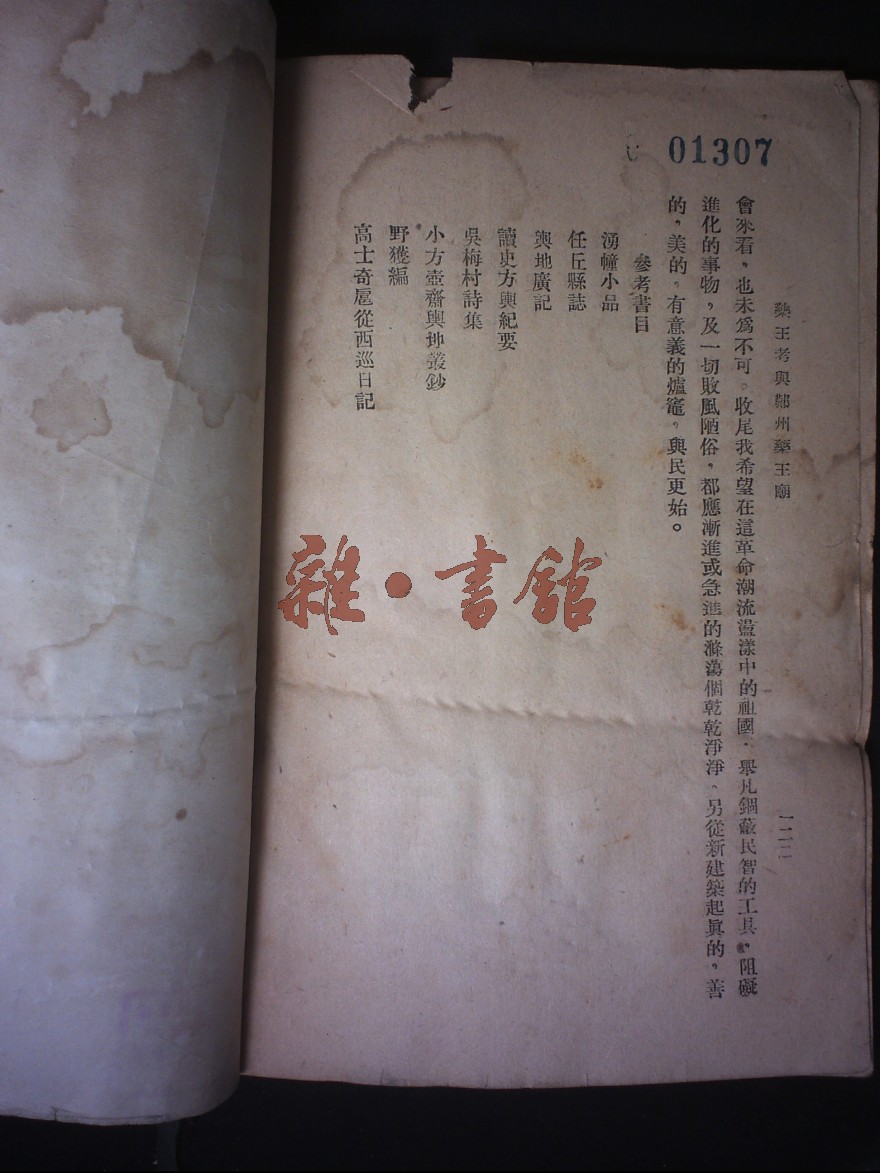 01307
藥王考與鄚州藥王廟
一二二
會來看，也未爲不可。收尾我希望在這革命潮流盪漾中的祖國，舉凡錮蔽民智的工具，阻礙
進化的事物，及一切敗風陋俗，都應漸進或急進的滌蕩個乾乾淨淨、另從新建築起眞的，善
的，美的，有意義的爐竈，與民更始。
參考書目
湧幢小品
任丘縣誌
輿地廣記
讀史方輿紀要
吳梅村詩集
小方壺齋輿地叢鈔
野獲編
高士奇扈從西巡日記
雜·書館